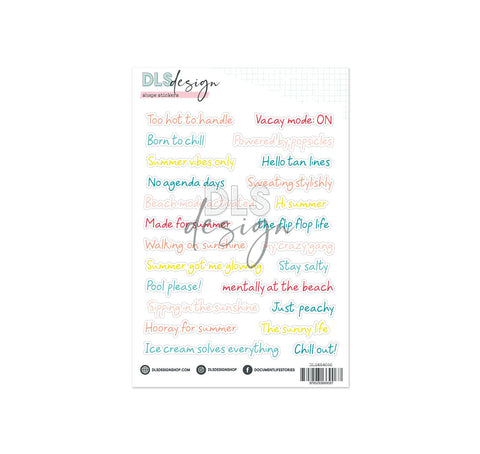 DLS design
shape stickers
Too hot to handle Vacay mode: ON
Born to chill Powered by popsicles
Summer vibes only Hello tan lines
No agenda days Sweating stylishly
Beach mode Hi summer
Made for summer the flip flop life
Walking on sunshine my crazy gang
Summer got me glowing Stay salty
Pool please! mentally at the beach
Sipping in the sunshine Just peachy
Hooray for summer The sunny life
Ice cream solves everything Chill out!
DLS design
DLSDESIGNSHOP.COM DLSDESIGNSHOP DOCUMENTLIFESTORIES